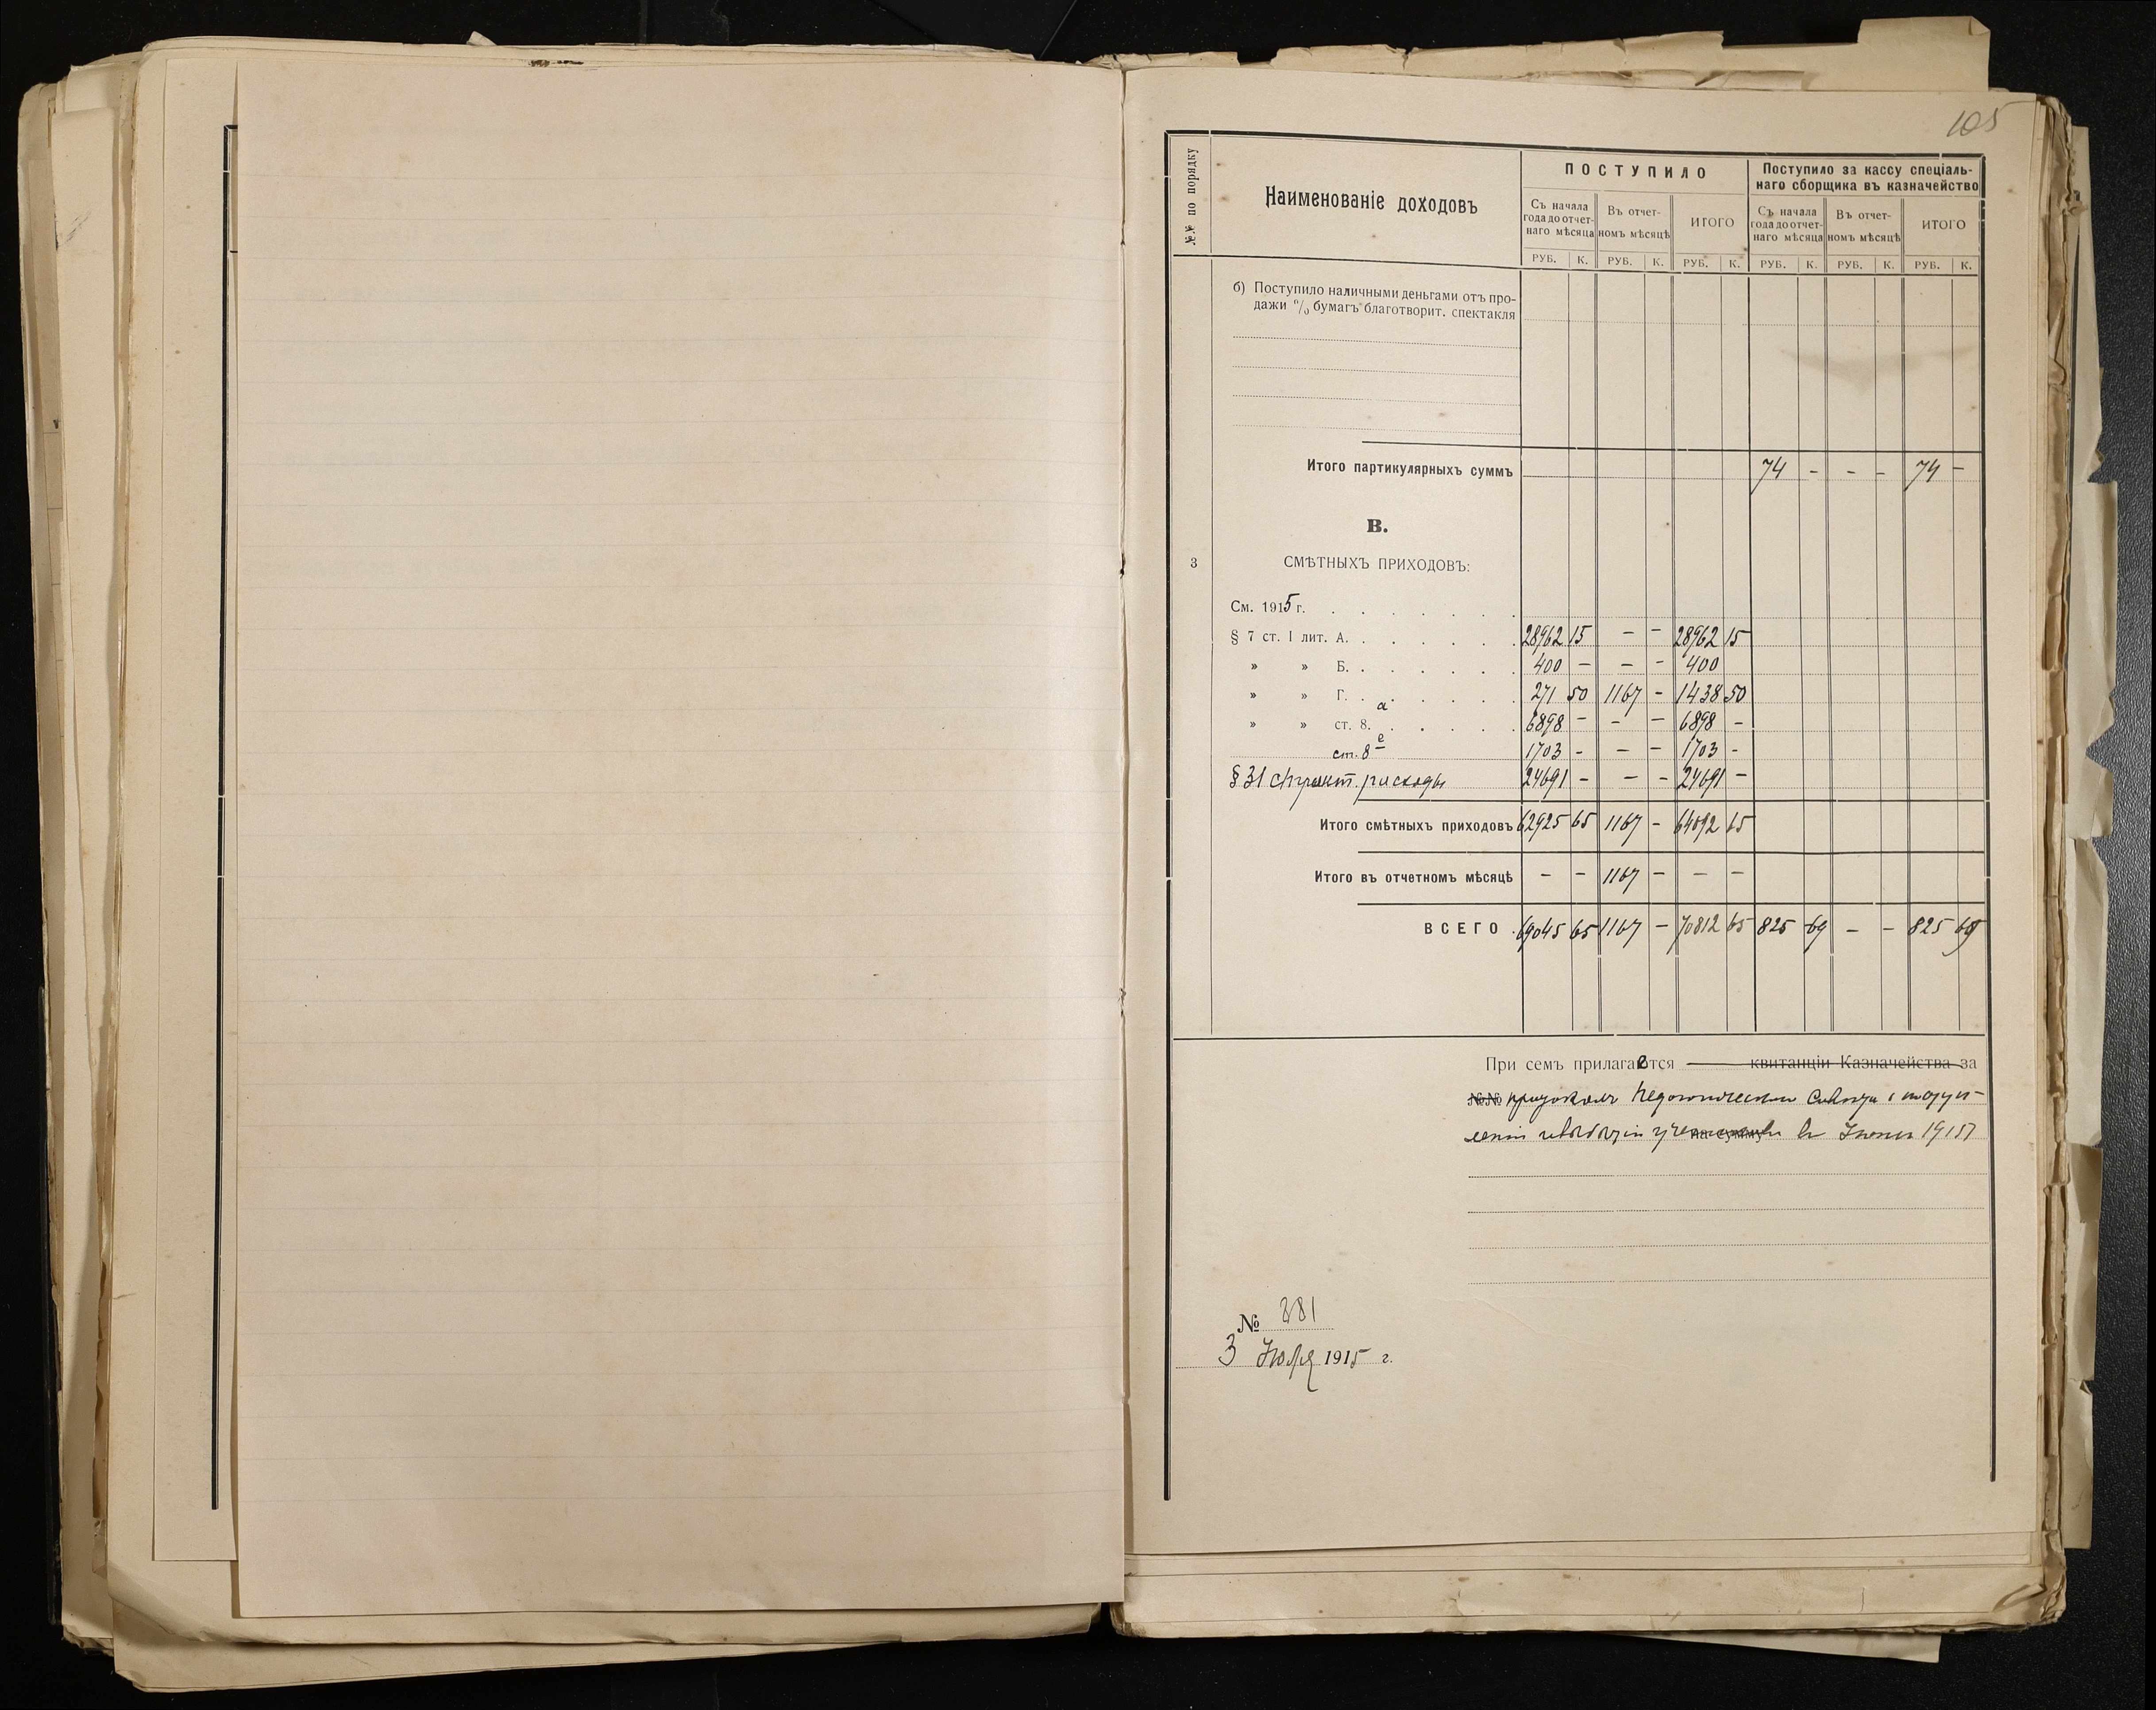 105
№№ по порядку
Наименованіе доходовъ
ПОСТУПИЛО
Поступило за кассу спеціаль-
наго сборщика въ казначейство
Съ начала
года до отчет-
наго мѣсяца
Въ отчет-
номъ мѣсяцѣ
ИТОГО
Съ начала
года до отчет-
наго мѣсяца
Въ отчет-
номъ мѣсяцѣ
ИТОГО
РУБ. К. РУБ. К. РУБ. К. РУБ. К. РУБ. К. РУБ. К.
б) Поступило наличными деньгами отъ про-
дажи % бумагъ благотворит. спектакля
Итого партикулярныхъ суммъ 74 - - - 74 -
В.
3 СМѢТНЫХЪ ПРИХОДОВЪ:
См. 1915 г.
§ 7 ст. I лит. А. 28962 15 - - 28962 15
» » Б. 400 - - - 400
» » Г. 271 50 1167 - 1438 50
» » ст. 8. а 6898 - - - 6898 -
ст. 8 е 1703 - - - 1703 -
§ 31 строит. расходы 24691 - - - 24691 -
Итого смѣтныхъ приходовъ 62925 65 1167 - 64092 65
Итого въ отчетномъ мѣсяцѣ - - 1167 - - -
ВСЕГО 69045 65 1167 - 70812 65 825 69 - - 825 69
При семъ прилагается квитанціи Казначейства за
№№ Совѣта
на сумму 1915
№ 281
3 Іюля 1915 г.